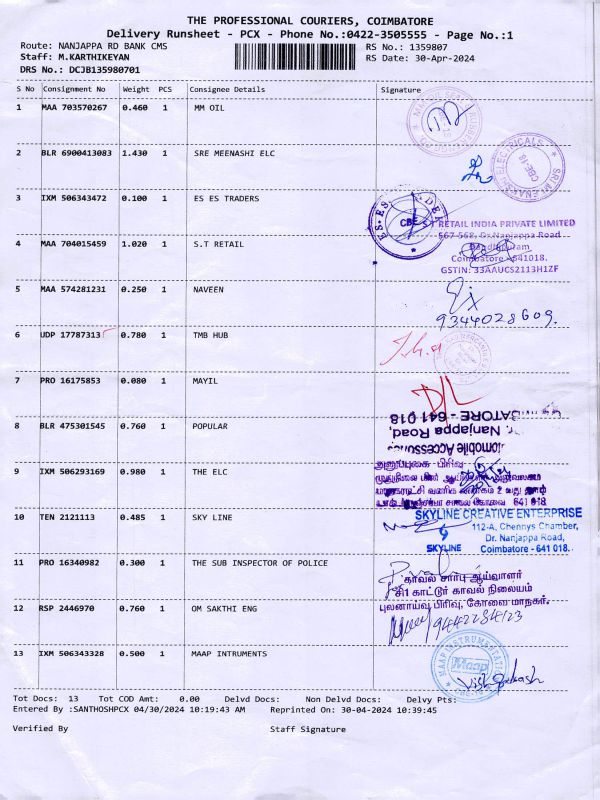 THE PROFESSIONAL COURIERS, COIMBATORE
Delivery Runsheet - PCX - Phone No.:0422-3505555 - Page No.:1
Route: NANJAPPA RD BANK CMS RS No.: 1359807
Staff: M.KARTHIKEYAN RS Date: 30-Apr-2024
DRS No.: DCJB135980701
S No Consignment No Weight PCS Consignee Details Signature
1 MAA 703570267 0.460 1 MM OIL
2 BLR 6900413083 1.430 1 SRE MEENASHI ELC
SRI MEENAKSHI ELECTRICALS
CBE-18
3 IXM 506343472 0.100 1 ES ES TRADERS
CBE
S.T RETAIL INDIA PRIVATE LIMITED
567-568, Dr.Nanjappa Road
4 MAA 704015459 1.020 1 S.T RETAIL
Gandhipuram,
Coimbatore - 641018.
GSTIN: 33AAUCS2113H1ZF
5 MAA 574281231 0.250 1 NAVEEN
9344028609.
6 UDP 17787313 0.780 1 TMB HUB
7 PRO 16175853 0.080 1 MAYIL
D/L
BATORE - 641 018
8 BLR 475301545 0.760 1 POPULAR
Dr. Nanjappa Road,
Automobile Accessories
அனுப்புகை - பிரிவு
9 IXM 506293169 0.980 1 THE ELC
641 018
10 TEN 2121113 0.485 1 SKY LINE
SKYLINE CREATIVE ENTERPRISE
112-A, Chennys Chamber,
Dr. Nanjappa Road,
SKYLINE Coimbatore - 641 018.
11 PRO 16340982 0.300 1 THE SUB INSPECTOR OF POLICE
காவல் சார்பு ஆய்வாளர்
சி1 காட்டூர் காவல் நிலையம்
புலனாய்வு பிரிவு, கோவை மாநகர்.
12 RSP 2446970 0.760 1 OM SAKTHI ENG
9442284123
13 IXM 506343328 0.500 1 MAAP INTRUMENTS
MAAP INSTRUMENTATION
Maap
Tot Docs: 13 Tot COD Amt: 0.00 Delvd Docs: Non Delvd Docs: Delvy Pts:
Entered By :SANTHOSHPCX 04/30/2024 10:19:43 AM Reprinted On: 30-04-2024 10:39:45
Verified By Staff Signature